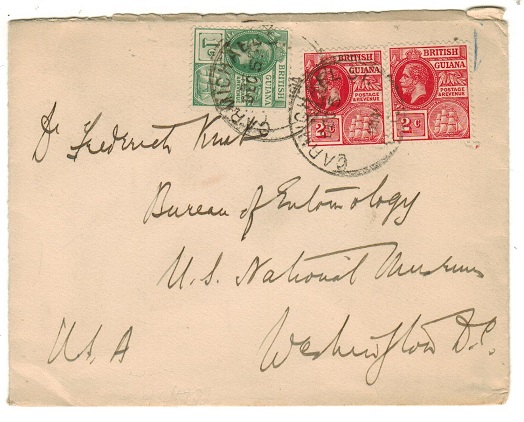 BRITISH GUIANA
1c
BRITISH
GUIANA
POSTAGE
& REVENUE
2c
BRITISH
GUIANA
POSTAGE
& REVENUE
2c
Dr Frederick Knab
Bureau of Entomology
U. S. National Museum
U. S. A
Washington D.C.